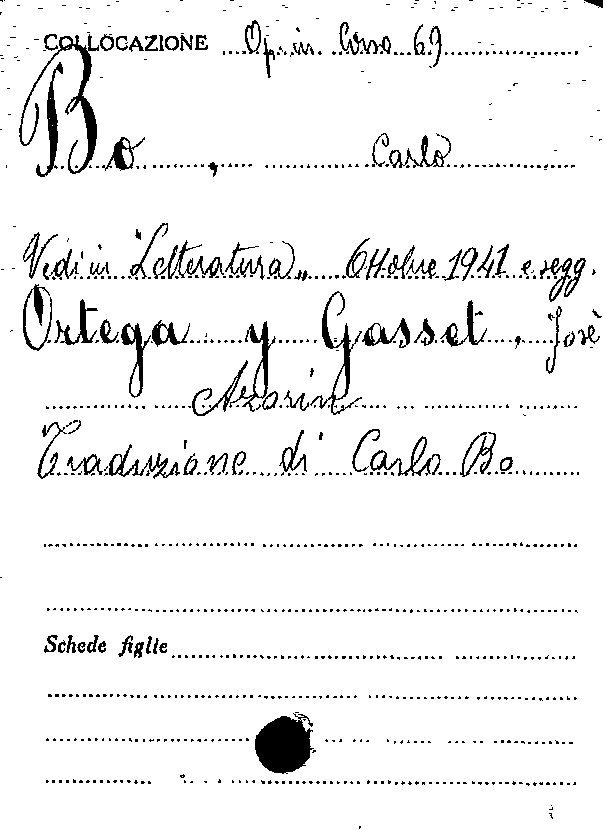 COLLOCAZIONE Op. in Corso 69
Bo, Carlo
Vedi in "Letteratura" Ottobre 1941 e segg.
Ortega y Gasset, Josè
Azorin
Traduzione di Carlo Bo
Schede figlie